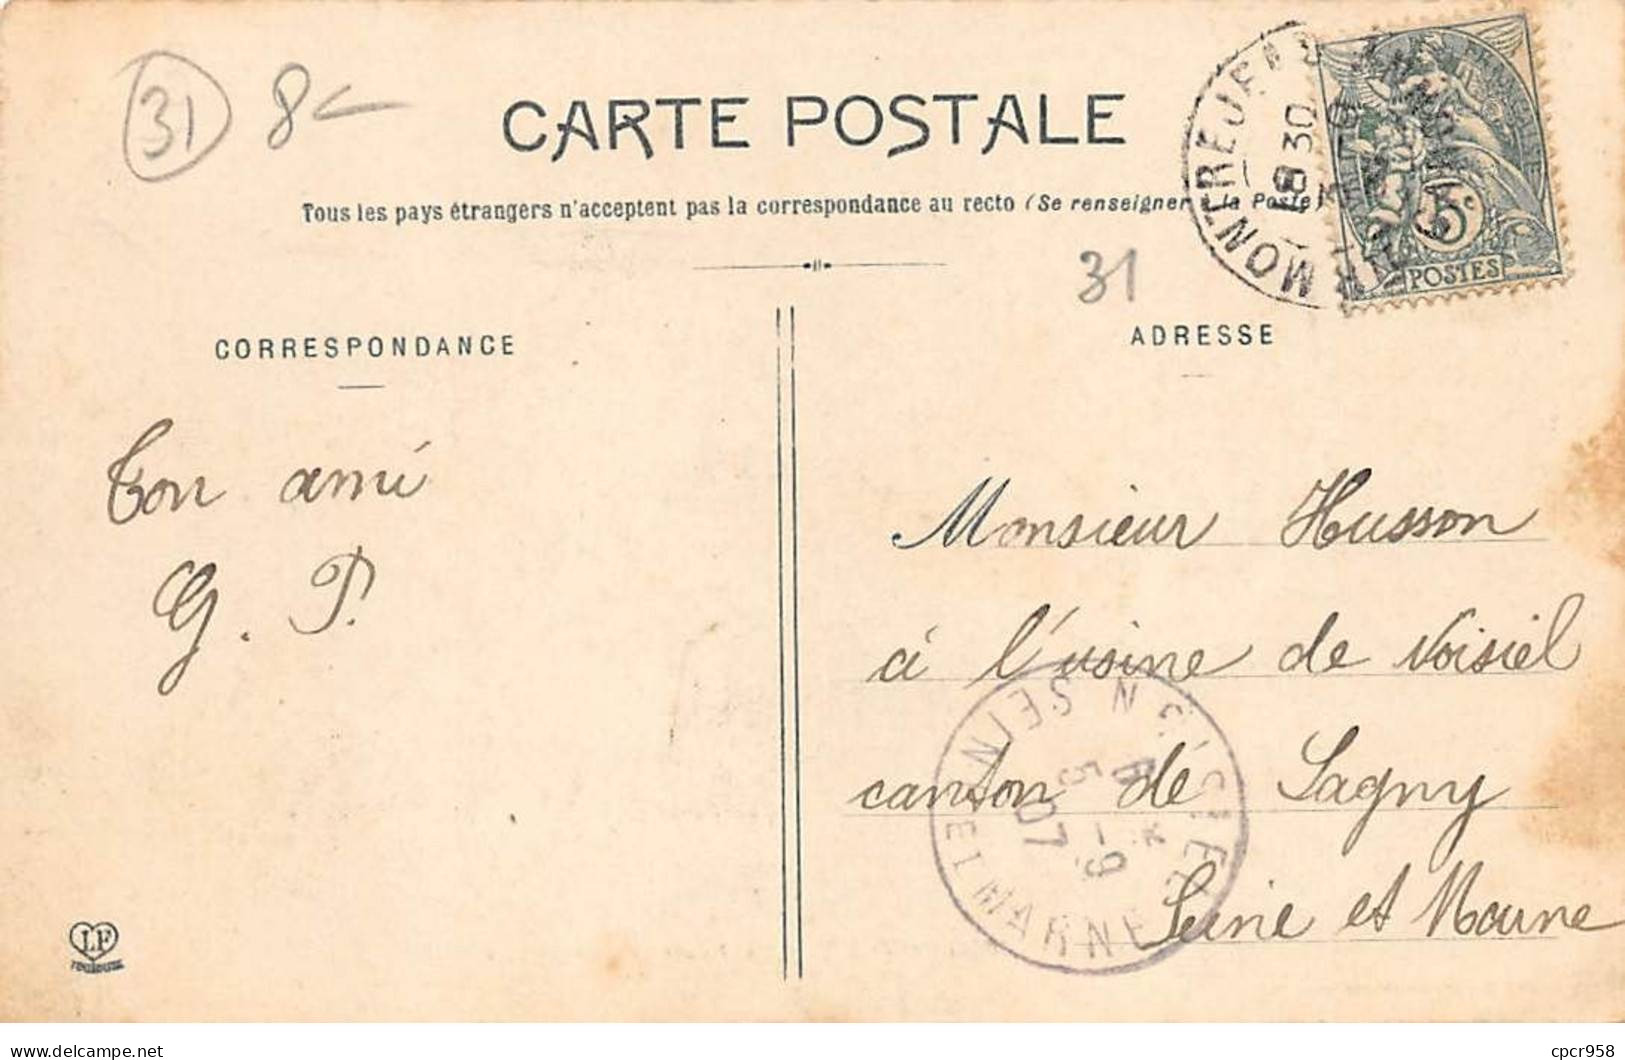 31 8
CARTE POSTALE
Tous les pays étrangers n'acceptent pas la correspondance au recto (Se renseigner à la Poste)
31
MONTREJEAU
8 30
5c
POSTES
CORRESPONDANCE
ADRESSE
Ton ami
G. P.
Monsieur Husson
à l'usine de Noisiel
canton de Lagny
Seine et Marne
SEINE
ET MARNE
5-9
07
LF
TOULOUSE
delcampe.net
cpcr958